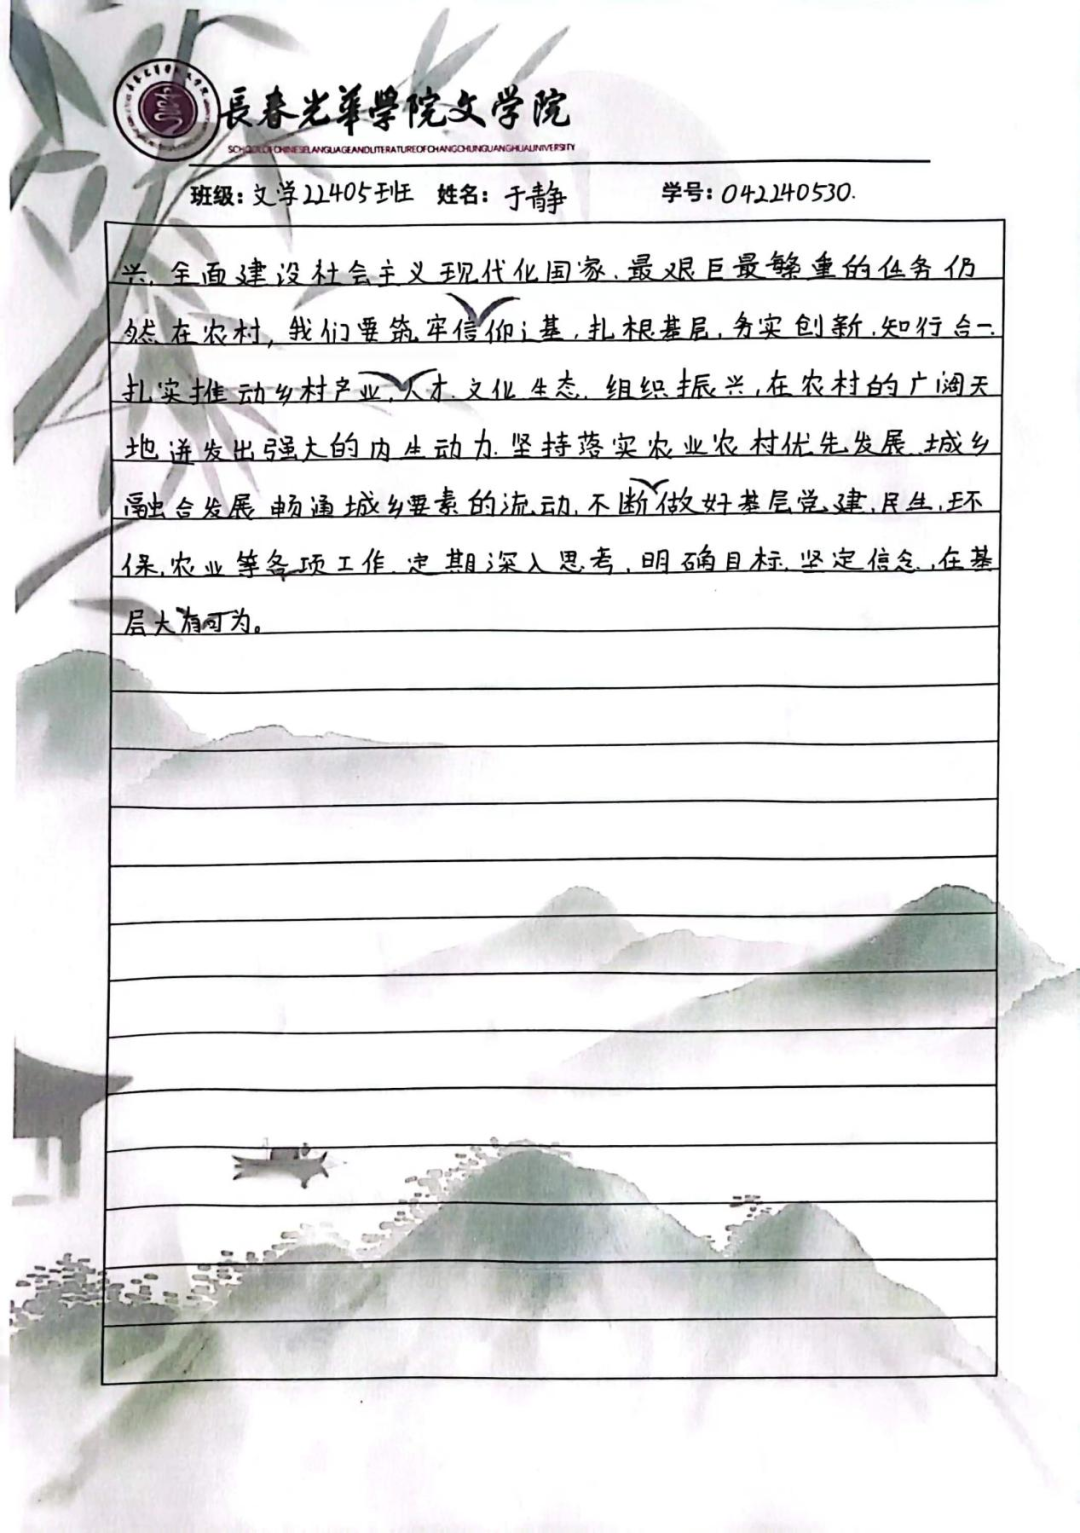 長春光華學院文学院
SCHOOL OF CHINESE LANGUAGE AND LITERATURE OF CHANGCHUN GUANGHUA UNIVERSITY
班级：文学22405班 姓名：于静 学号：042240530.
兴，全面建设社会主义现代化国家.最艰巨最繁重的任务仍
然在农村，我们要筑牢信仰之基，扎根基层，务实创新.知行合一.
扎实推动乡村产业，人才.文化生态.组织振兴，在农村的广阔天
地迸发出强大的内生动力.坚持落实农业农村优先发展.城乡
融合发展 畅通城乡要素的流动，不断做好基层党建，民生，环
保，农业等各项工作.定期深入思考，明确目标.坚定信念，在基
层大有可为。